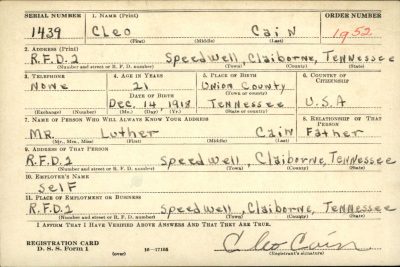 SERIAL NUMBER 1. NAME (Print) ORDER NUMBER
1439 Cleo Cain 1952
(First) (Middle) (Last)
2. ADDRESS (Print)
R.F.D.2 Speedwell, Claiborne, Tennessee
(Number and street or R. F. D. number) (Town) (County) (State)
3. TELEPHONE 4. AGE IN YEARS 5. PLACE OF BIRTH 6. COUNTRY OF CITIZENSHIP
None 21 Union County
DATE OF BIRTH (Town or county)
Dec. 14, 1918 Tennessee U.S.A
(Exchange) (Number) (Mo.) (Day) (Yr.) (State or country)
7. NAME OF PERSON WHO WILL ALWAYS KNOW YOUR ADDRESS 8. RELATIONSHIP OF THAT PERSON
MR. Luther Cain Father
(Mr., Mrs., Miss) (First) (Middle) (Last)
9. ADDRESS OF THAT PERSON
R.F.D.2 Speedwell, Claiborne, Tennessee
(Number and street or R. F. D. number) (Town) (County) (State)
10. EMPLOYER'S NAME
Self
11. PLACE OF EMPLOYMENT OR BUSINESS
R.F.D.2 Speedwell, Claiborne, Tennessee
(Number and street or R. F. D. number) (Town) (County) (State)
I AFFIRM THAT I HAVE VERIFIED ABOVE ANSWERS AND THAT THEY ARE TRUE.
REGISTRATION CARD
D. S. S. Form 1 (over) 16-17105 Cleo Cain
(Registrant's signature)